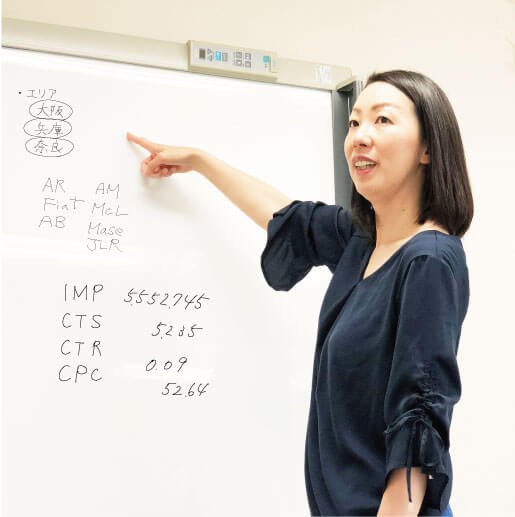 ・エリア
大阪
兵庫
奈良
AR AM
Fiat McL
AB Mase
JLR
IMP 5,552,745
CTS 5,235
CTR 0.09
CPC 52.64